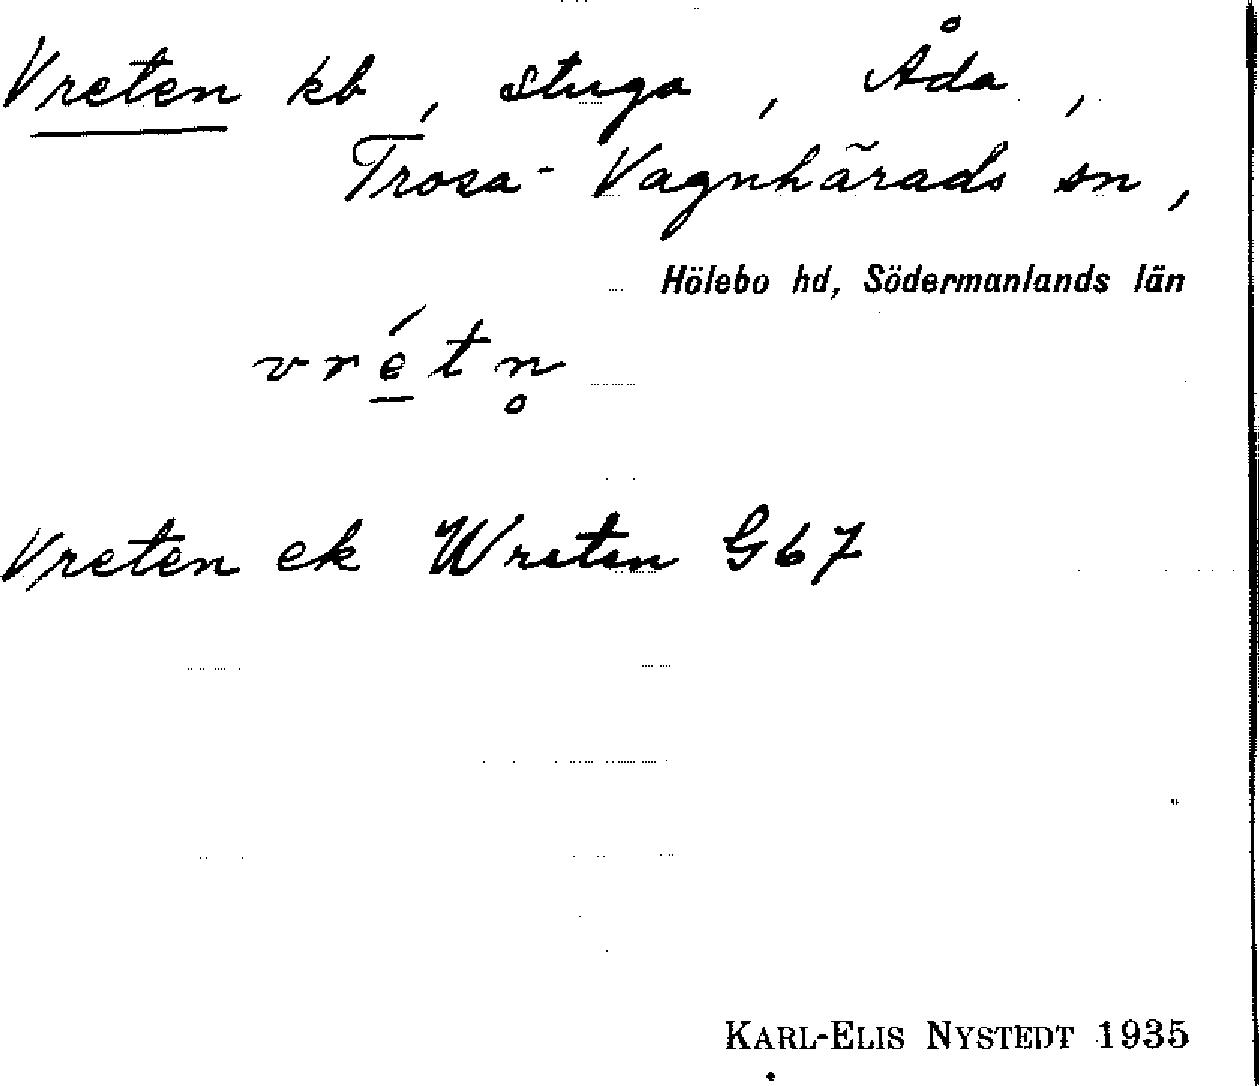 Vreten kb, stuga, Åda,
Trosa-Vagnhärads sn,
Hölebo hd, Södermanlands län
vré̱tn̥
Vreten ek Wreten G67
KARL-ELIS NYSTEDT 1935